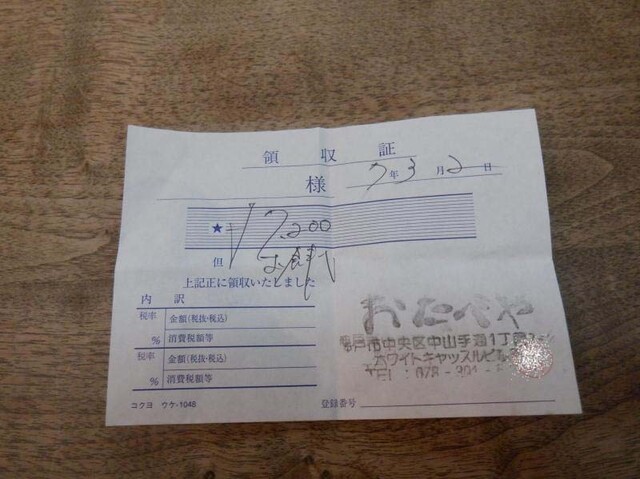 領収証
様 7年3月2日
★ ¥7,200
但 お食事代
上記正に領収いたしました
内訳
税率 金額(税抜・税込)
% 消費税額等
税率 金額(税抜・税込)
% 消費税額等
おたべや
神戸市中央区中山手通1丁目
ホワイトキャッスルビル
TEL:078-391-
コクヨ ウケ-1048
登録番号